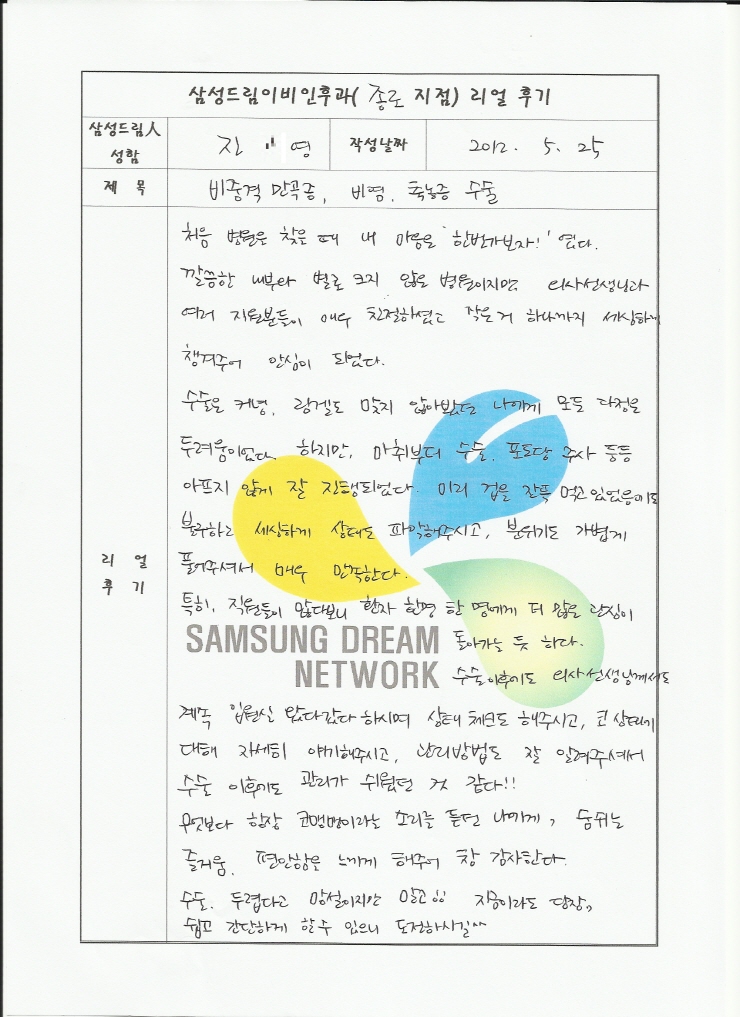 삼성드림이비인후과( 종로 지점) 리얼 후기
삼성드림人 성함
진 영
작성날짜
2012. 5. 25
제 목
비중격 만곡증, 비염, 축농증 수술
리 얼 후 기
처음 병원은 찾은 때 내 마음은 '한번가보자!' 였다.
깔끔한 내부와 별로 크지 않은 병원이지만, 의사선생님과
여러 직원분들이 매우 친절하셨고 작은거 하나까지 세심하게
챙겨주어 안심이 되었다.
수술은 커녕, 링겔도 맞지 않아봤던 나에게 모든 과정은
두려움이었다. 하지만, 마취부터 수술, 포도당 주사 등등
아프지 않게 잘 진행되었다. 미리 겁을 잔뜩 먹고있었음에도
불구하고 세심하게 상태도 파악해주시고, 분위기도 가볍게
풀어주셔서 매우 만족한다.
특히, 직원들이 많다보니 환자 한명 한 명에게 더 많은 관심이
돌아가는 듯 하다.
SAMSUNG DREAM
NETWORK
수술이후에도 의사선생님께서도
계속 입원실 왔다갔다 하시며 상태 체크도 해주시고, 코 상태에
대해 자세히 얘기해주시고, 관리방법도 잘 알려주셔서
수술 이후에도 관리가 쉬웠던 것 같다!!
무엇보다 항상 코맹맹이라는 소리를 듣던 나에게, 숨쉬는
즐거움, 편안함을 느끼게 해주어 참 감사한다.
수술, 두렵다고 망설이지만 말고!! 지금이라도 당장,
쉽고 간단하게 할수 있으니 도전하시길^^